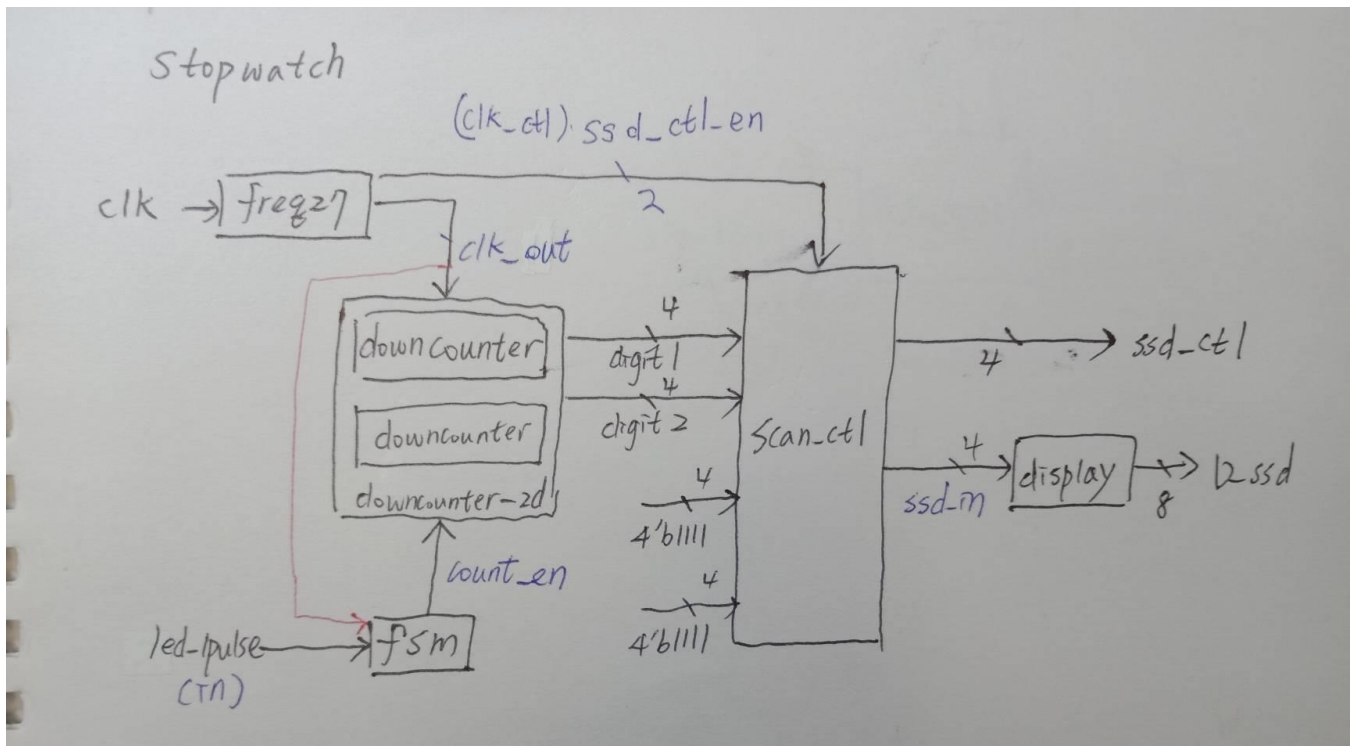 Stopwatch
(clk_ctl) ssd_ctl_en
2
clk
freq27
clk_out
downcounter
downcounter
downcounter-2d
4
digit1
4
digit2
4
4'b1111
4
4'b1111
scan_ctl
4
ssd_ctl
4
ssd_in
display
8
D_ssd
count_en
led_1pulse
(in)
fsm